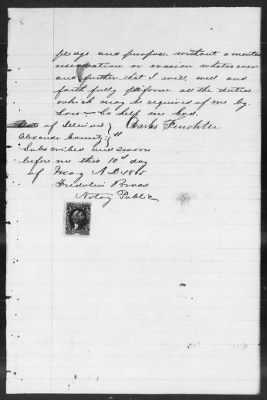 pledge and purpose without a mental
reservation or evasion whatsoever
and further that I will, well and
faithfully perform all the duties
which may be required of me by
Law - So help me God.
State of Illinois } Charles Feuchter
Alexander County } ss
Subscribed and sworn
before me this 10th day
of May A D 1865
Fredolin Bross
Notary Public